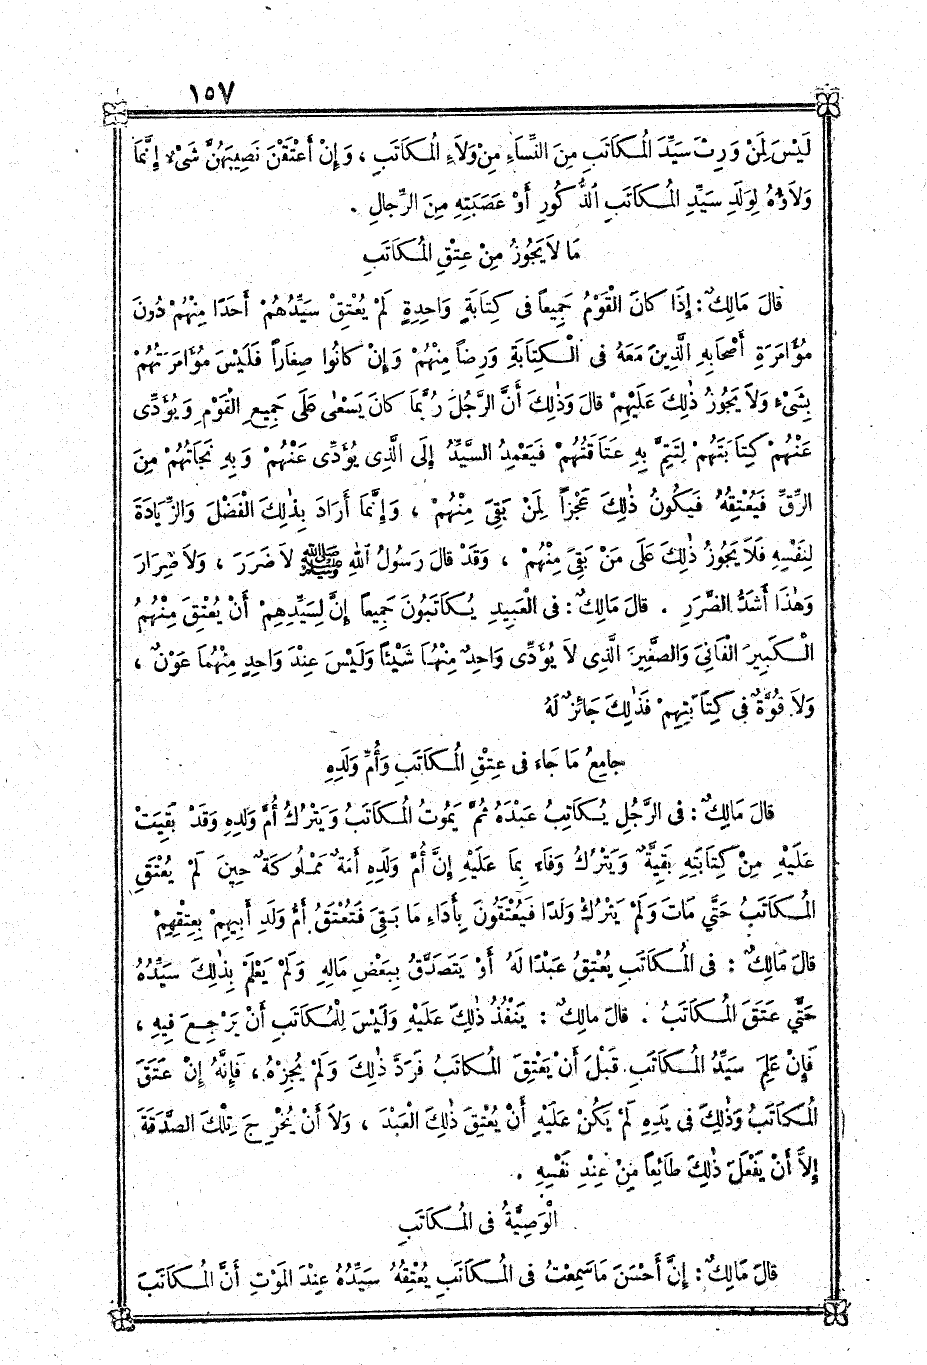 ١٥٧
لَيْسَ لِمَنْ وَرِثَ سَيِّدَ الْمُكَاتَبِ مِنَ النِّسَاءِ مِنْ وَلاَءِ الْمُكَاتَبِ ، وَإِنْ أَعْتَقْنَ نَصِيبَهُنَّ شَىْءٌ إِنَّمَا
وَلاَؤُهُ لِوَلَدِ سَيِّدِ الْمُكَاتَبِ الذُّكُورِ أَوْ عَصَبَتِهِ مِنَ الرِّجالِ .
مَا لاَ يَجُوزُ مِنْ عِتْقِ الْمُكَاتَبِ
قالَ مَالِكٌ : إِذَا كَانَ الْقَوْمُ جَمِيعاً فى كِتَابَةٍ وَاحِدِةٍ لَمْ يُعْتِقْ سَيِّدُهُمْ أَحَدًا مِنْهُمْ دُونَ
مُؤَامَرَةِ أَصْحَابِهِ الَّذِينَ مَعَهُ فى الْكِتَابَةِ وَرِضاً مِنْهُمْ وَإِنْ كانُوا صِغَاراً فَلَيْسَ مُؤَامَرَتُهُمْ
بِشَىْءٍ وَلاَ يَجُوزُ ذٰلِكَ عَلَيْهِمْ قالَ وَذٰلِكَ أَنَّ الرَّجُلَ رُبَّمَا كانَ يَسْعٰى عَلَى جَمِيعِ الْقَوْمِ وَيُؤَدِّى
عَنْهُمْ كِتَابَتَهُمْ لِتَتِمَّ بِهِ عَتَاقَتُهُمْ فَيَعْمِدُ السَّيِّدُ إِلَى الَّذِى يُؤَدِّى عَنْهُمْ وَبِهِ نَجَاتُهُمْ مِنَ
الرِّقِّ فَيُعْتِقُهُ فَيَكُونُ ذٰلِكَ عَجْزاً لِمَنْ بَقِىَ مِنْهُمْ ، وَإِنَّمَا أَرَادَ بِذٰلِكَ الْفَضْلَ وَالزِّيَادَةَ
لِنَفْسِهِ فَلاَ يَجُوزُ ذٰلِكَ عَلَى مَنْ بَقِىَ مِنْهُمْ ، وَقَدْ قالَ رَسُولُ اللهِ ﷺ لاَ ضَرَرَ ، وَلاَ ضِرَارَ
وَهٰذَا أَشَدُّ الضَّرَرِ . قالَ مَالِكٌ : فى الْعَبِيدِ يُكَاتَبُونَ جَمِيعاً إِنَّ لِسَيِّدِهِمْ أَنْ يُعْتِقَ مِنْهُمُ
الْكَبِيرَ الْفَانِىَ وَالصَّغِيرَ الَّذِى لاَ يُؤَدِّى وَاحِدٌ مِنْهُمَا شَيْئاً وَلَيْسَ عِنْدَ وَاحِدٍ مِنْهُمَا عَوْنٌ ،
وَلاَ قُوَّةٌ فى كِتَابَتِهِمْ فَذٰلِكَ جَائزٌ لَهُ
جامِعُ مَا جَاءَ فى عِتْقِ الْمُكَاتَبِ وَأُمِّ وَلَدِهِ
قالَ مَالِكٌ : فى الرَّجُلِ يُكَاتِبُ عَبْدَهُ ثُمَّ يَمُوتُ الْمُكَاتَبُ وَيَتْرُكُ أُمَّ وَلَدِهِ وَقَدْ بَقِيَتْ
عَلَيْهِ مِنْ كِتَابَتِهِ بَقِيَّةٌ وَيَتْرُكُ وَفَاءً بِمَا عَلَيْهِ إِنَّ أُمَّ وَلَدِهِ أَمَةٌ مَمْلُوكَةٌ حِينَ لَمْ يُعْتَقِ
الْمُكَاتَبُ حَتَّى مَاتَ وَلَمْ يَتْرُكْ وَلَدًا فَيُعْتَقُونَ بِأَدَاءِ مَا بَقِىَ فَتُعْتَقُ أُمُّ وَلَدِ أَبِيهِمْ بِعِتْقِهِمْ
قالَ مَالِكٌ : فى الْمُكَاتَبِ يُعْتِقُ عَبْدًا لَهُ أَوْ يَتَصَدَّقُ بِبَعْضِ مَالِهِ وَلَمْ يَعْلَمْ بِذٰلِكَ سَيِّدُهُ
حَتَّى عَتَقَ الْمُكَاتَبُ . قالَ مالِكٌ : يَنْفُذُ ذٰلِكَ عَلَيْهِ وَلَيْسَ لِلْمُكَاتَبِ أَنْ يَرْجِعَ فِيهِ ،
فَإِنْ عَلِمَ سَيِّدُ الْمُكَاتَبِ قَبْلَ أَنْ يَعْتِقَ الْمُكاتَبُ فَرَدَّ ذٰلِكَ وَلَمْ يُجِزْهُ ، فَإِنَّهُ إِنْ عَتَقَ
الْمُكَاتَبُ وَذٰلِكَ فى يَدِهِ لَمْ يَكُنْ عَلَيْهِ أَنْ يُعْتِقَ ذٰلِكَ الْعَبْدَ ، وَلاَ أَنْ يُخْرِجَ تِلْكَ الصَّدَقَةَ
إِلاَّ أَنْ يَفْعَلَ ذٰلِكَ طَائِعاً مِنْ عِنْدِ نَفْسِهِ .
الْوَصِيَّةُ فى الْمُكَاتَبِ
قالَ مَالِكٌ : إِنَّ أَحْسَنَ مَا سَمِعْتُ فى الْمُكَاتَبِ يُعْتِقُهُ سَيِّدُهُ عِنْدَ المَوْتِ أَنَّ الْمُكَاتَبَ